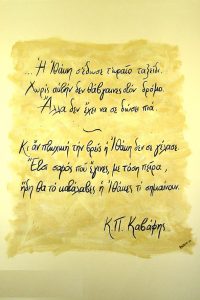 ...Η Ιθάκη σ' έδωσε τ' ωραίο ταξείδι.
Χωρίς αυτήν δεν θάβγαινες στον δρόμο.
Άλλα δεν έχει να σε δώσει πιά.
Κι αν πτωχική την βρείς η Ιθάκη δεν σε γέλασε.
Έτσι σοφός που έγινες, με τόση πείρα,
ήδη θα το κατάλαβες ή Ιθάκες τί σημαίνουν.
Κ.Π. Καβάφης